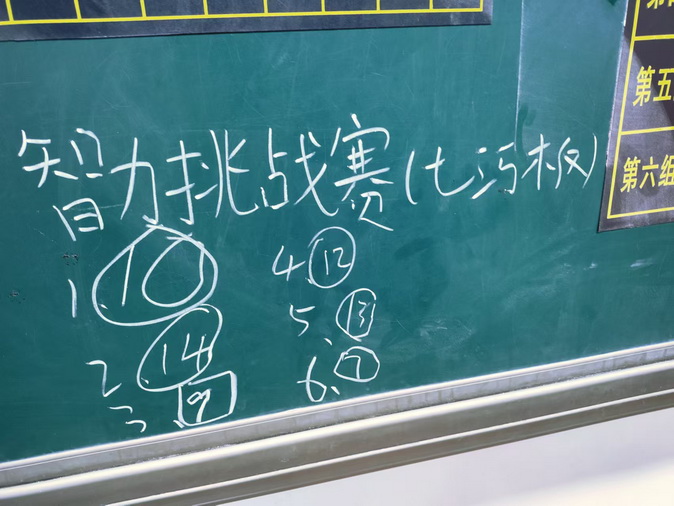 智力挑战赛(七巧板)
1.10 4.12
2.14 5.13
3.9 6.7
第五
第六组